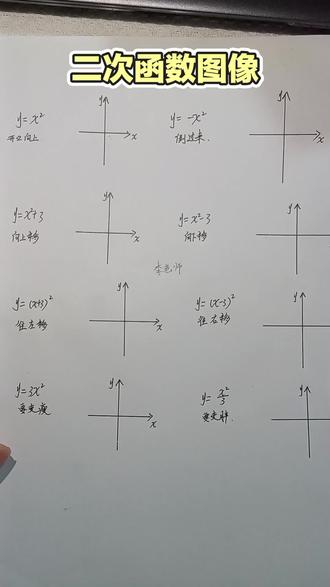 二次函数图像
y = x²
开口向上
y
x
y = -x²
倒过来.
y
x
y = x²+3
向上平移
y
x
y = x²-3
向下移
y
李老师
y = (x+3)²
往左移
y
x
y = (x-3)²
往右移
y
y = 3x²
要变瘦
y
x
y = x²/3
要变胖.
y